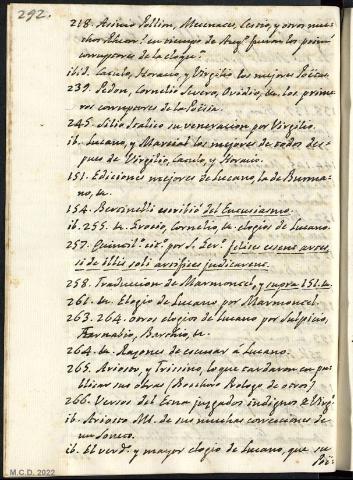 292.
218. Asinio Pollion, Mecenates, Cestio, y otros mu-
chos Rhetor.s en tiempo de Aug.to fueron los prim.s
corruptores de la eloqu.a
ibid. Catulo, Horacio, y Virgilio los mejores Poëtas.
239. Pedon, Cornelio Severo, Ovidio, &. los prime-
ros corruptores de la Poësia.
245. Silio Italico su veneracion por Virgilio.
ib. Lucano, y Marcial los mejores de todos des-
pues de Virgilio, Catulo, y Horacio.
151. Ediciones mejores de Lucano, la de Burma-
no, &.
154. Bervinelli escribió del Entusiasmo.
ib. 255. &. Stacio, Cornelio, &. elogios de Lucano.
257. Quincil.o cit.o por S. Ger.o felices essent artes,
si de illis soli artifices judicarent.
258. Traduccion de Marmoncel, y supra 151. &.
261. &. Elogio de Lucano por Marmoncel.
263. 264. otros elogios de Lucano por Sulpicio,
Farnabio, Barthio, &.
264. &. Razones de escusar á Lucano.
265. Ariosto, y Trissino, lo que tardaron en pu-
blicar sus obras (Boschero Prologo de otros)
266. Versos del Etna juzgados indignos de Virg.o
ib. Ariosto M. de sus muchas correcciones de
un Soneto.
ib. El verd.o y mayor elogio de Lucano, que su
Poë-
M.C.D. 2022